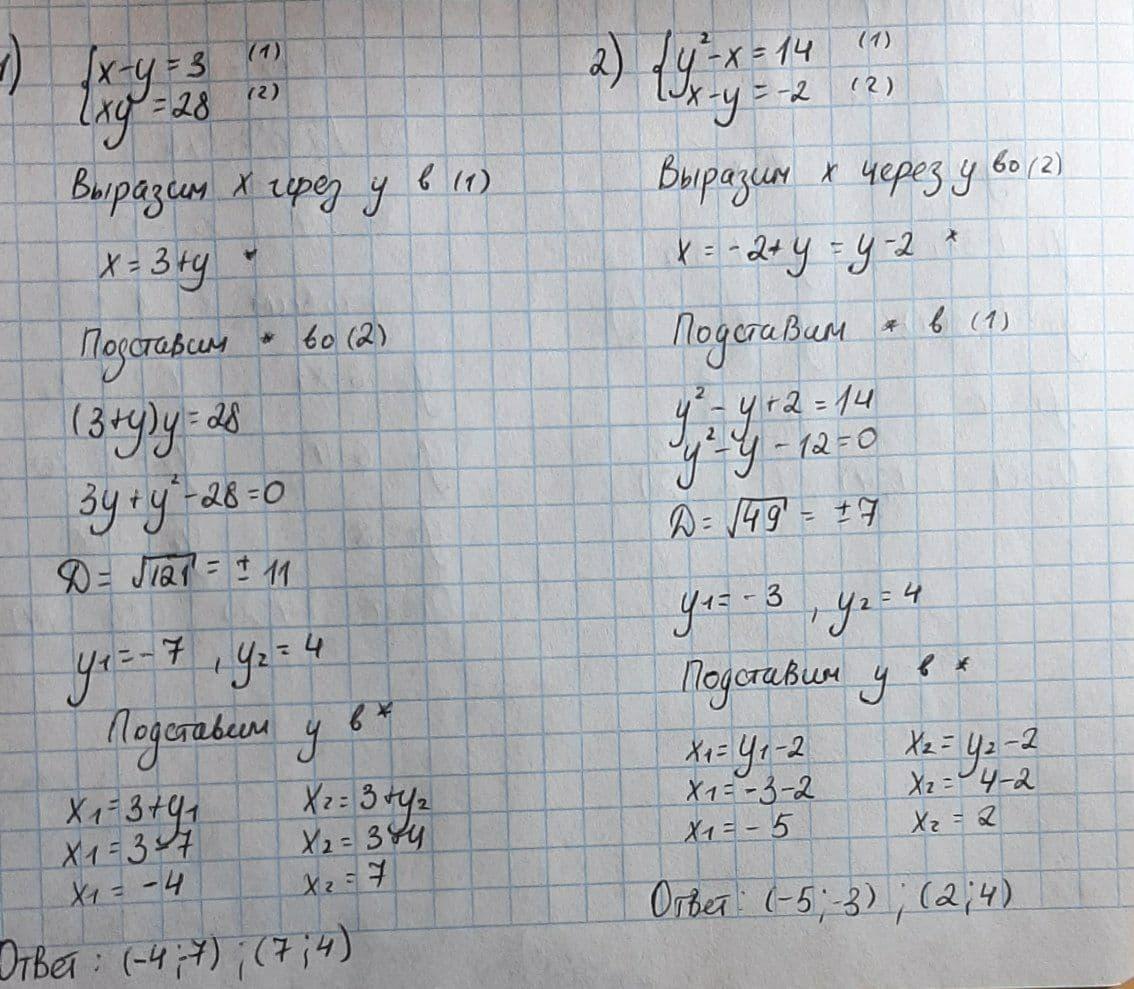 1) {x-y=3 (1)
{xy=28 (2)
Выразим x через y в (1)
x=3+y *
Подставим * во (2)
(3+y)y=28
3y+y²-28=0
D=√121=±11
y1=-7, y2=4
Подставим y в *
x1=3+y1 x2=3+y2
x1=3-7 x2=3+4
x1=-4 x2=7
Ответ: (-4;-7);(7;4)
2) {y²-x=14 (1)
{x-y=-2 (2)
Выразим x через y во (2)
x=-2+y=y-2 *
Подставим * в (1)
y²-y+2=14
y²-y-12=0
D=√49=±7
y1=-3, y2=4
Подставим y в *
x1=y1-2 x2=y2-2
x1=-3-2 x2=4-2
x1=-5 x2=2
Ответ: (-5;-3);(2;4)